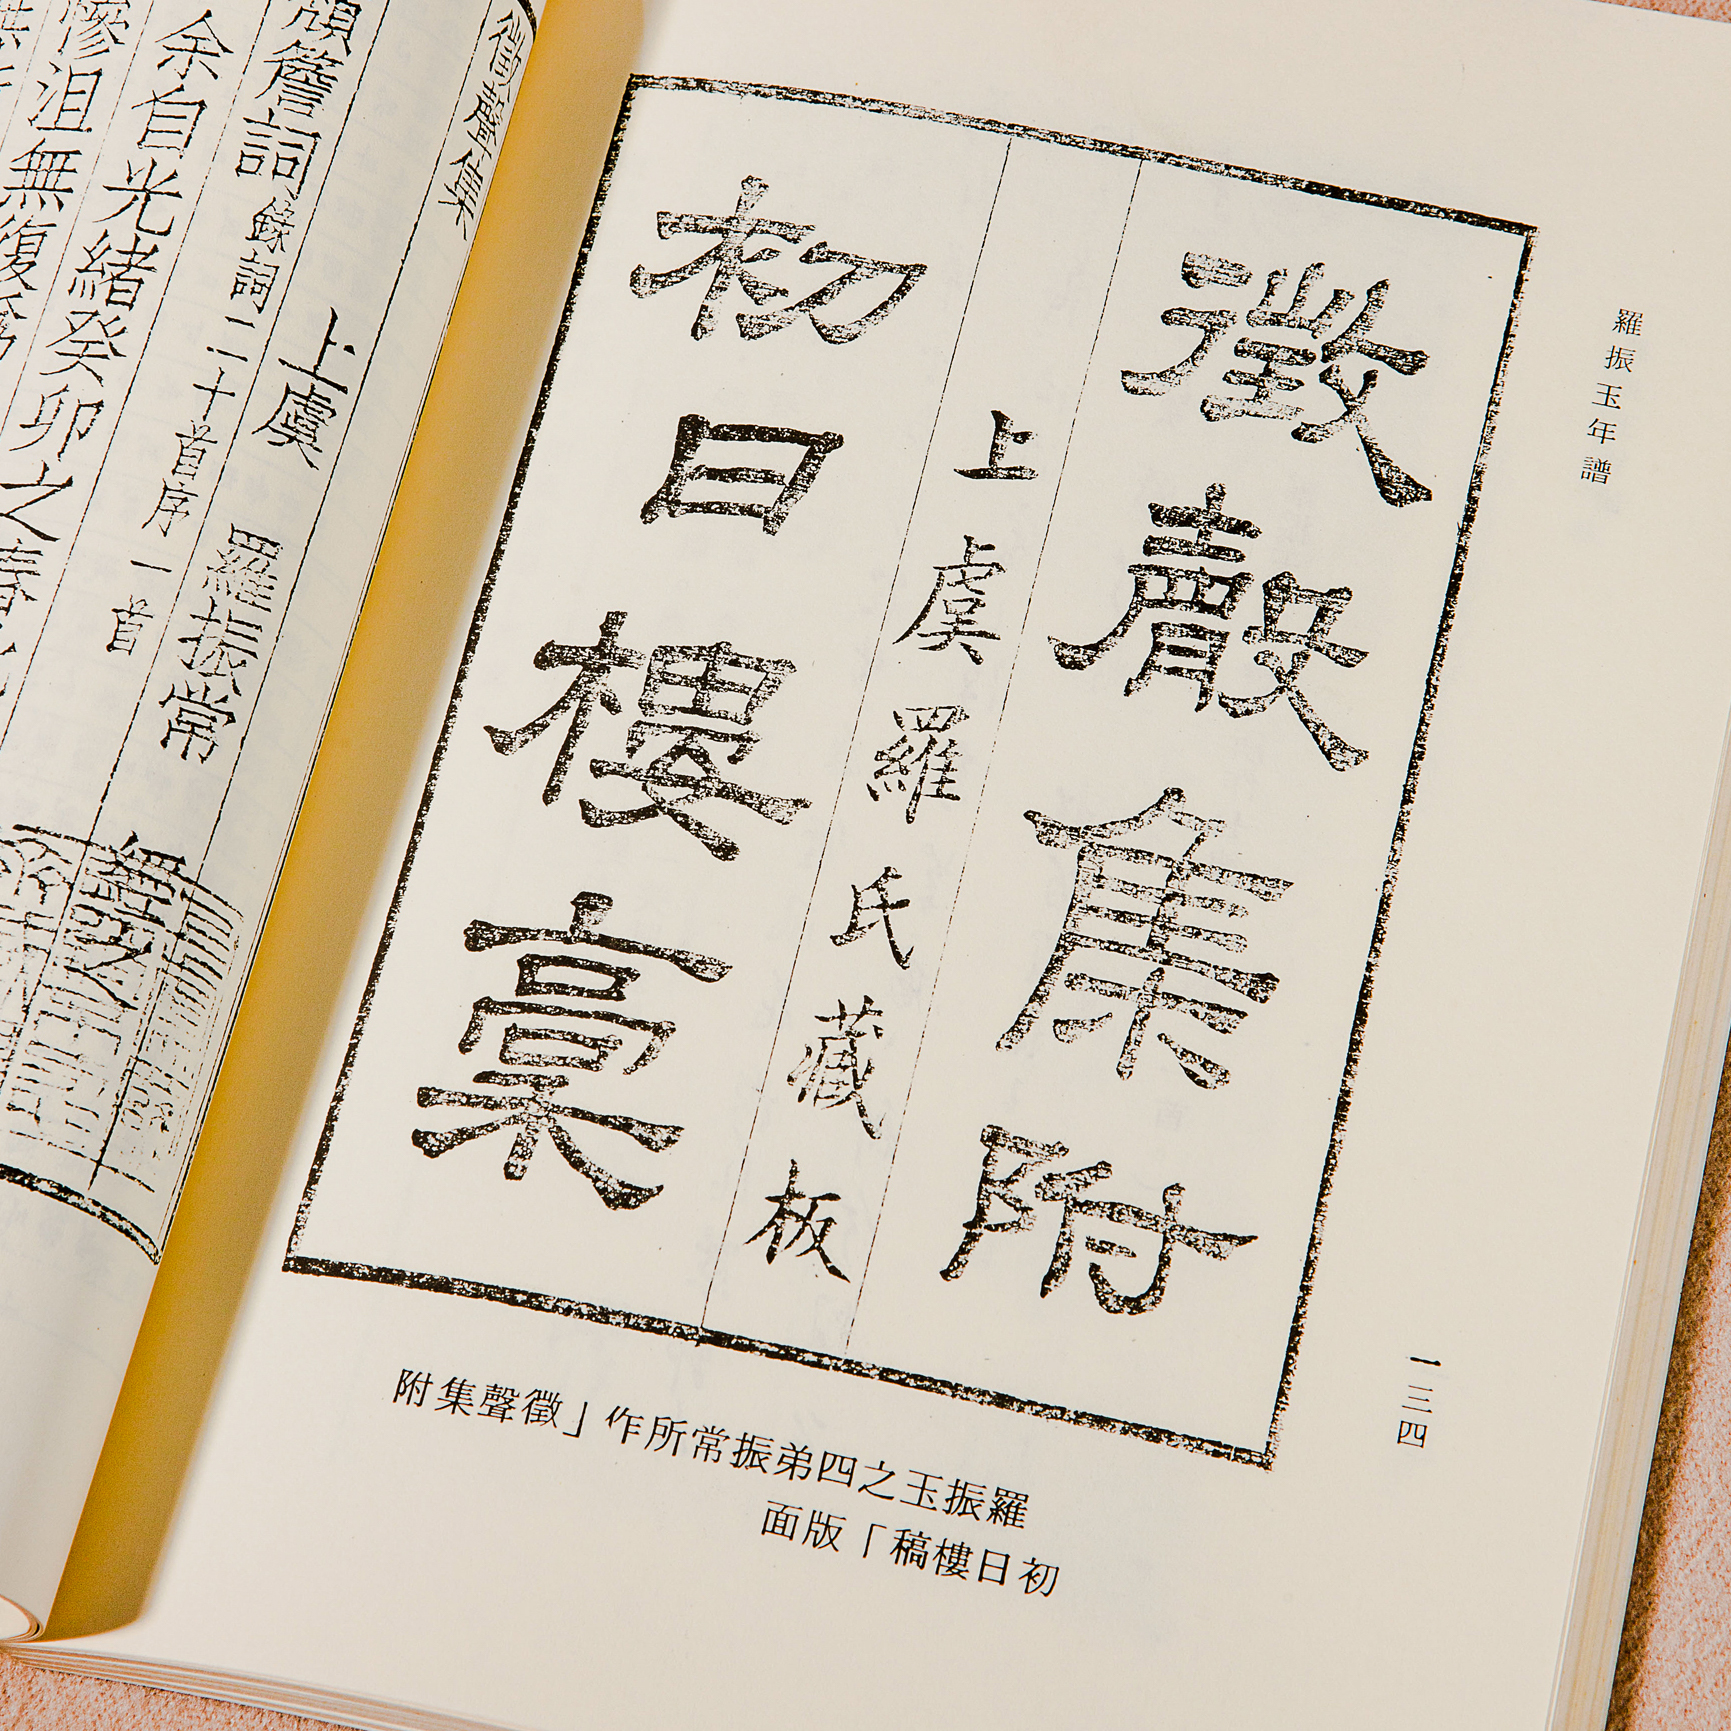 羅振玉年譜
徵聲集附
上虞羅氏藏板
初日樓稾
羅振玉之四弟振常所作」徵聲集附
初日樓稿「版面
一三四
徵聲集
簷詞錄詞二十首序一首
上虞 羅振常
余自光緒癸卯之春
慘沮無復